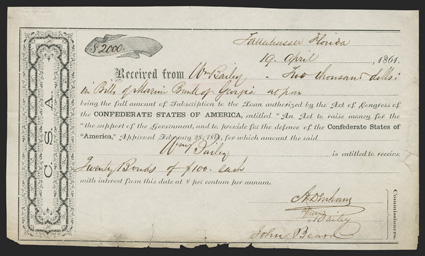 $2000
Tallahassee Florida
19 April , 1861.
Received from Wm Bailey Two thousand dolls:
in Bills of Marine Bank of Georgia at par
being the full amount of Subscription to the Loan authorized by the Act of Congress of
the CONFEDERATE STATES OF AMERICA, entitled "An Act to raise money for the
"the support of the Government, and to provide for the defence of the Confederate States of
"America," Approved February 28, 1861, for which amount the said
Wm Bailey is entitled to receive
Twenty Bonds of $100. each
with interest from this date at 8 per centum per annum.
Wm Bailey
John Beard
Commissioners.
C. S. A.